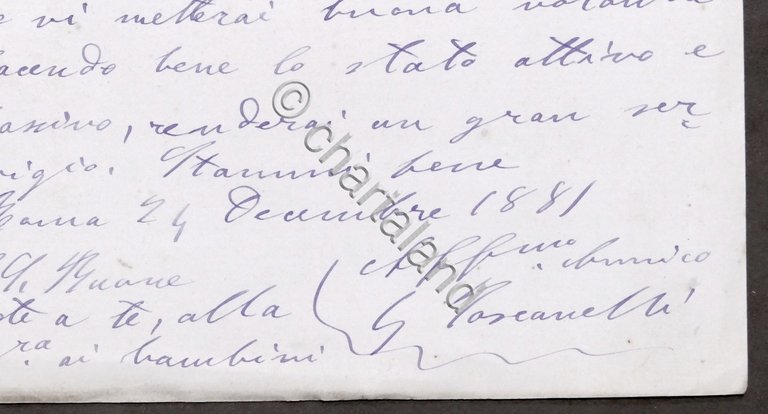 e vi metterai buona volontà
facendo bene lo stato attivo e
passivo, renderai un gran ser-
vigio. Stammi bene
Roma 24 Decembre 1881
Aff.mo Amico
G Toscanelli
Buone
te a te, alla
ra ai bambini
© chartaland